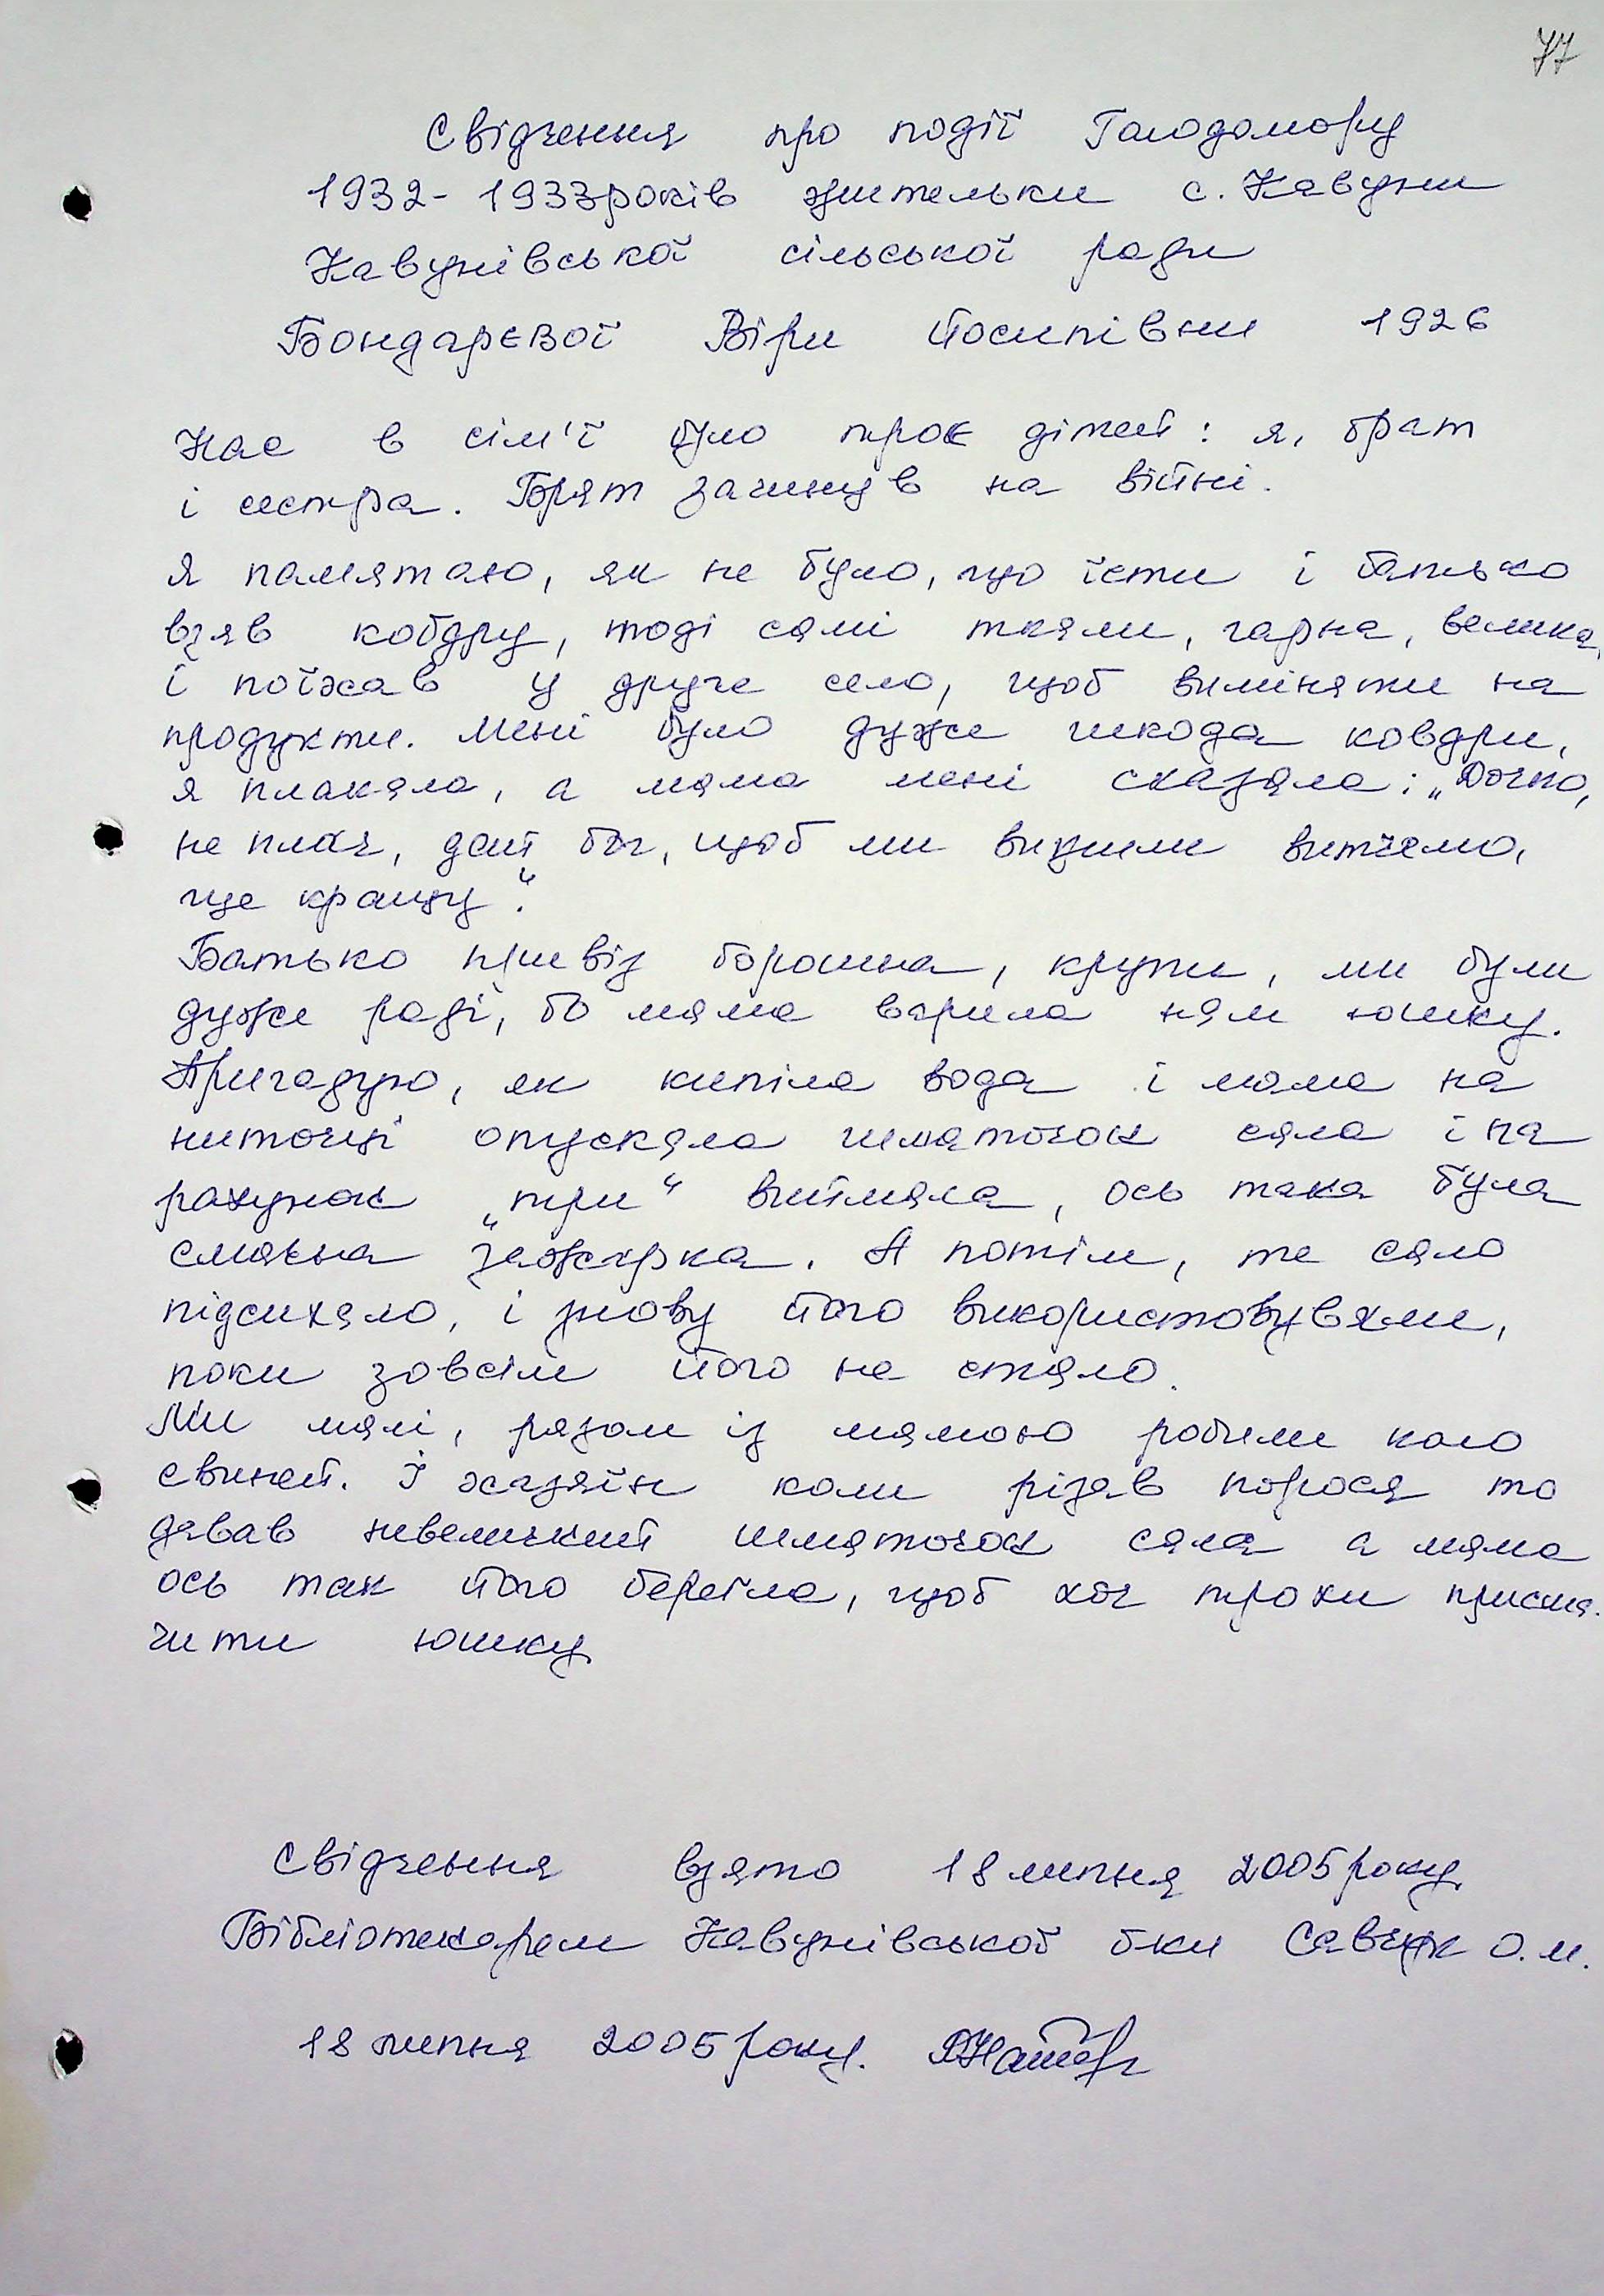 77
Свідчення про події Голодомору
1932-1933років жительки с. Кавуни
Кавунівської сільської ради
Бондарєвої Віри Йосипівни 1926
Нас в сім'ї було троє дітей: я, брат
і сестра. Брат загинув на війні.
Я памятаю, як не було, що їсти і батько
взяв кобдру, тоді самі ткали, гарна, велика,
і поїхав у друге село, щоб виміняти на
продукти. Мені було дуже шкода ковдри,
я плакала, а мама мені сказала: „Дочко,
не плач, дай бог, щоб ми вижили витчемо,
ще кращу".
Батько привіз борошна, крупи, ми були
дуже раді, бо мама варила нам юшку.
Пригадую, як кипіла вода і мама на
ниточці опускала шматочок сала і на
рахунок „три" виймала, ось така була
смачна зажарка. А потім, те сало
підсихало, і знову його використовували,
поки зовсім його не стало.
Ми малі, разом із мамою робили коло
свиней. І хазяїн коли різав порося то
давав невеличкий шматочок сала а мама
ось так його берегла, щоб хоч трохи присма-
чити юшку
Свідчення взято 18 липня 2005року
Бібліотекарем Кавунівської б-ки Савчук О.М.
18 липня 2005року.